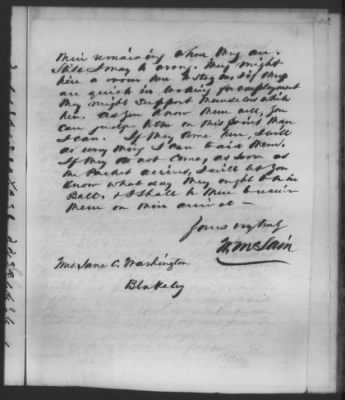 their remaining when they are.
Still I may be wrong. They might
hire a room here & stay, & if they
are quick in looking for employment
they might support themselves while
here. As you know them all, you
can judge them on this point than
I can. If they come here, I will
do every thing I can to aid them.
If they do not come, as soon as
the Packet arrives, I will let you
Know what day they ought to be in
Balt. & I shall be there to receive
them on their arrival —
Yours very truly
W. McLain
Mrs Jane C. Washington
Blakeley